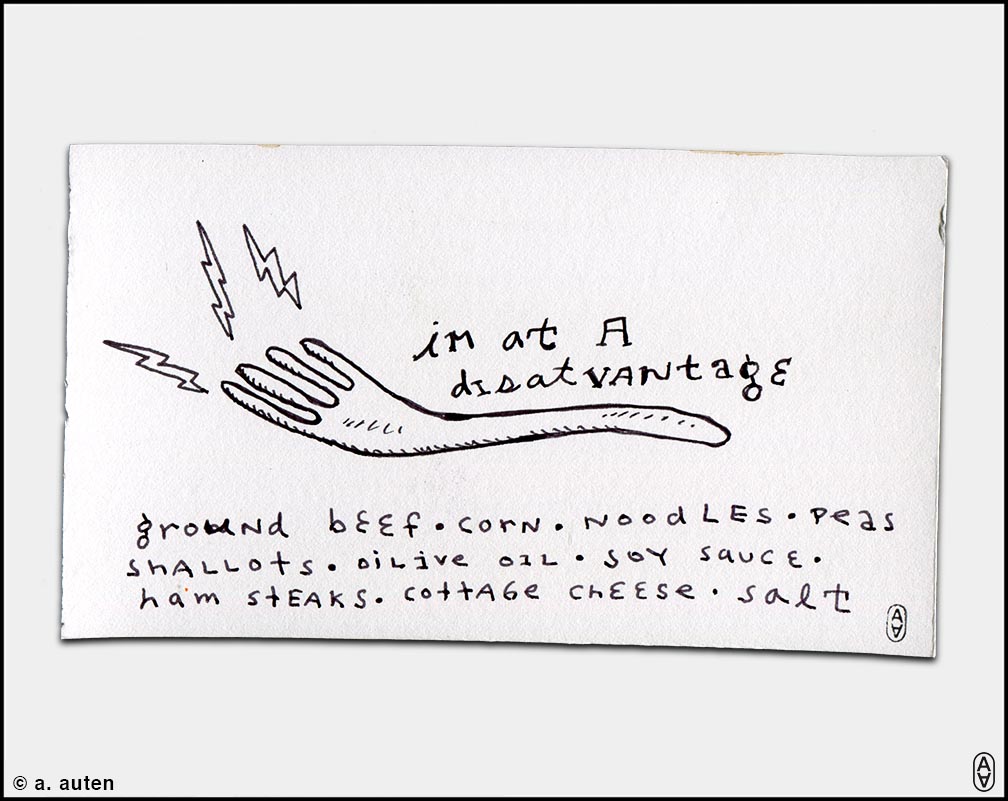 im at A
disatvantage
ground beef. corn. noodLES. peas
shALLots. oiLive oIL. soy sauce.
ham stEAKS. cottAGe chEESe. salt
AA
© a. auten
AA